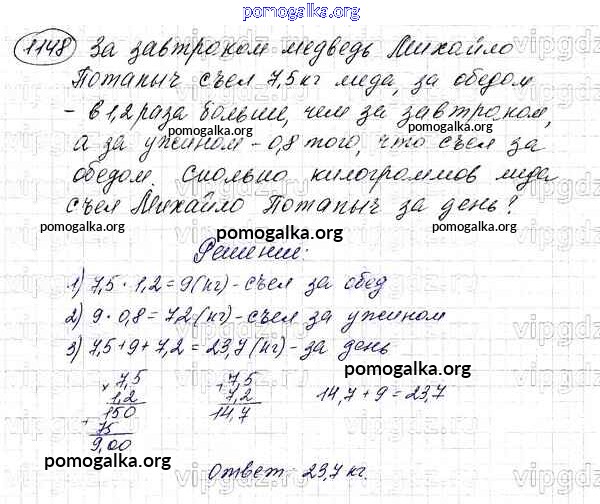 pomogalka.org
1148 За завтраком медведь Михайло
Потапыч съел 7,5 кг меда, за обедом
pomogalka.org
- в 1,2 раза больше, чем за завтраком,
pomogalka.org pomogalka.org
а за ужином - 0,8 того, что съел за
pomogalka.org
обедом. Сколько килограммов меда
съел Михайло Потапыч за день?
pomogalka.org pomogalka.org
pomogalka.org
Решение:
1) 7,5 · 1,2 = 9 (кг) - съел за обед
2) 9 · 0,8 = 7,2 (кг) - съел за ужином
3) 7,5 + 9 + 7,2 = 23,7 (кг) - за день
pomogalka.org
× 7,5 + 7,5 14,7 + 9 = 23,7
1,2 7,2
150 14,7
+ 75
9,00
pomogalka.org
Ответ: 23,7 кг.